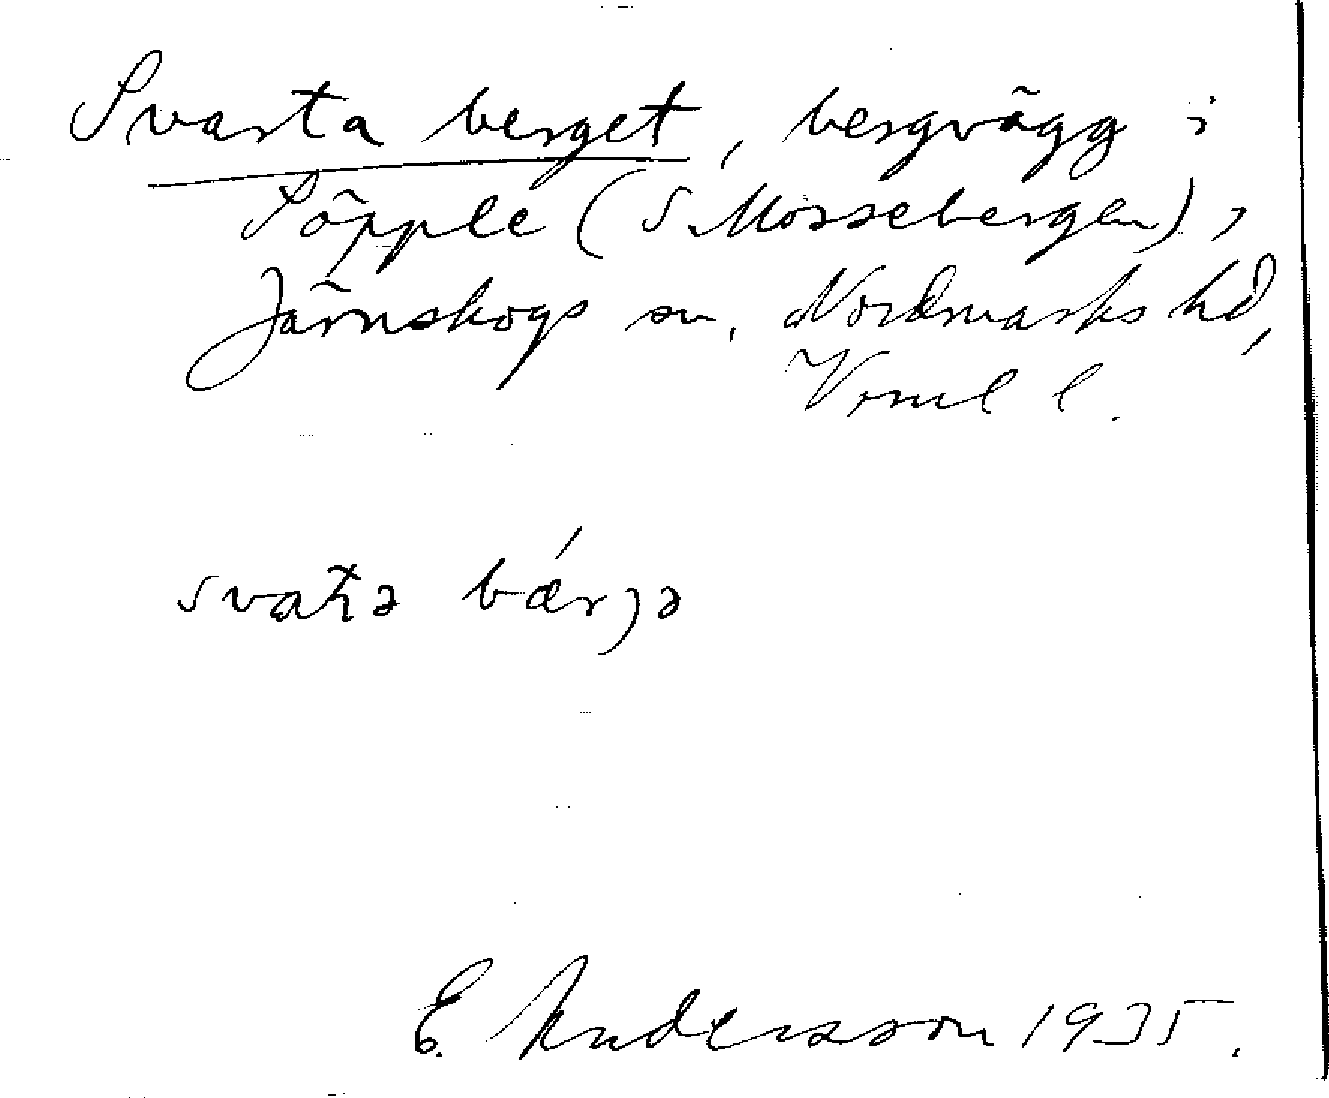 Svarta berget, bergvägg i
Söpple (S. Mossebergen),
Järnskogs sn, Nordmarks hd,
Vrml l.
svaʈə bǽrjə
E. Andersson 1935.